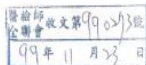 醫檢師公聯會收文第990293號
99年11月23日